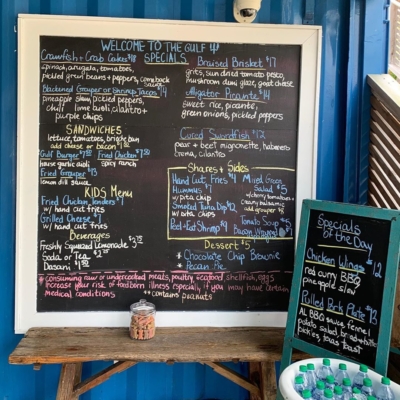 WELCOME TO THE GULF
SPECIALS
Crawfish + Crab Cakes $18
spinach, arugula, tomatoes,
pickled green beans + peppers, comeback sauce
Blackened Grouper or Shrimp Tacos $14
pineapple slaw, pickled peppers,
chili lime aioli, cilantro +
purple chips
Braised Brisket $17
grits, sun dried tomato pesto,
mushroom demi glaze, goat cheese
Alligator Picante $14
sweet rice, picante,
green onions, pickled peppers
Cured Swordfish $12
pear + beet mignonette, habanero
crema, cilantro
SANDWICHES
lettuce, tomatoes, brioche bun
add cheese or bacon $1
Gulf Burger
house garlic aioli
Fried Chicken
spicy ranch
Fried Grouper $13
lemon dill sauce
KIDS Menu
Fried Chicken Tenders
w/ hand cut fries
Grilled Cheese
w/ hand cut fries
Beverages
Freshly Squeezed Lemonade
Soda or Tea
Dasani
Shares + Sides
Hand Cut Fries $4
Hummus
w/ pita chip
Smoked Tuna Dip
w/ pita chips
Peel + Eat Shrimp
Mixed Green
Salad $5
cherry tomatoes +
creamy balsamic
add grouper
Tomato Soup
Bacon Wrapped
Dessert $5
* Chocolate Chip Brownie
* Pecan Pie
* consuming raw or undercooked meats, poultry, seafood, shellfish, eggs
increase your risk of foodborn illness, especially if you may have certain
medical conditions
** contains peanuts
Specials
of the Day
Chicken Wings $12
red curry BBQ
pineapple slaw
Pulled Pork Plate $13
AL BBQ sauce, fennel
potato salad, bread + butter
pickles, texas toast